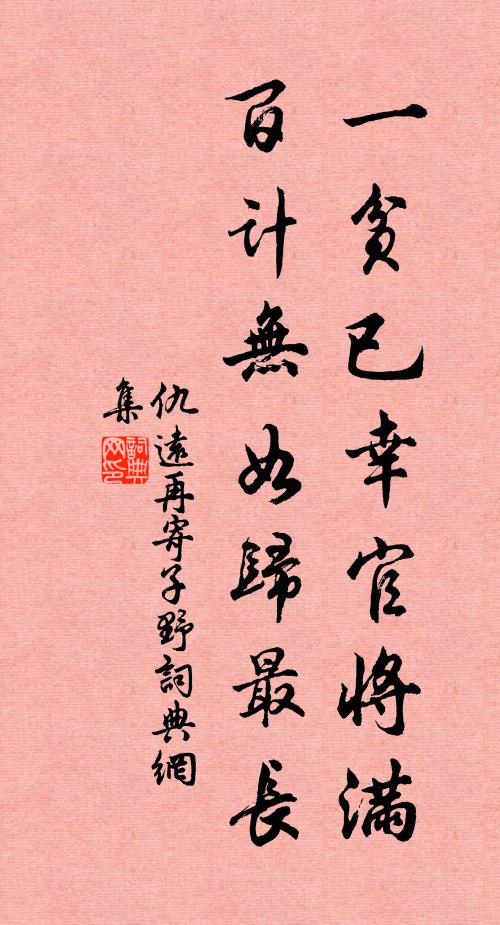 一貧已幸官將滿
百計無如歸最長
仇遠再寄子野詞典網
集
詞典
网印